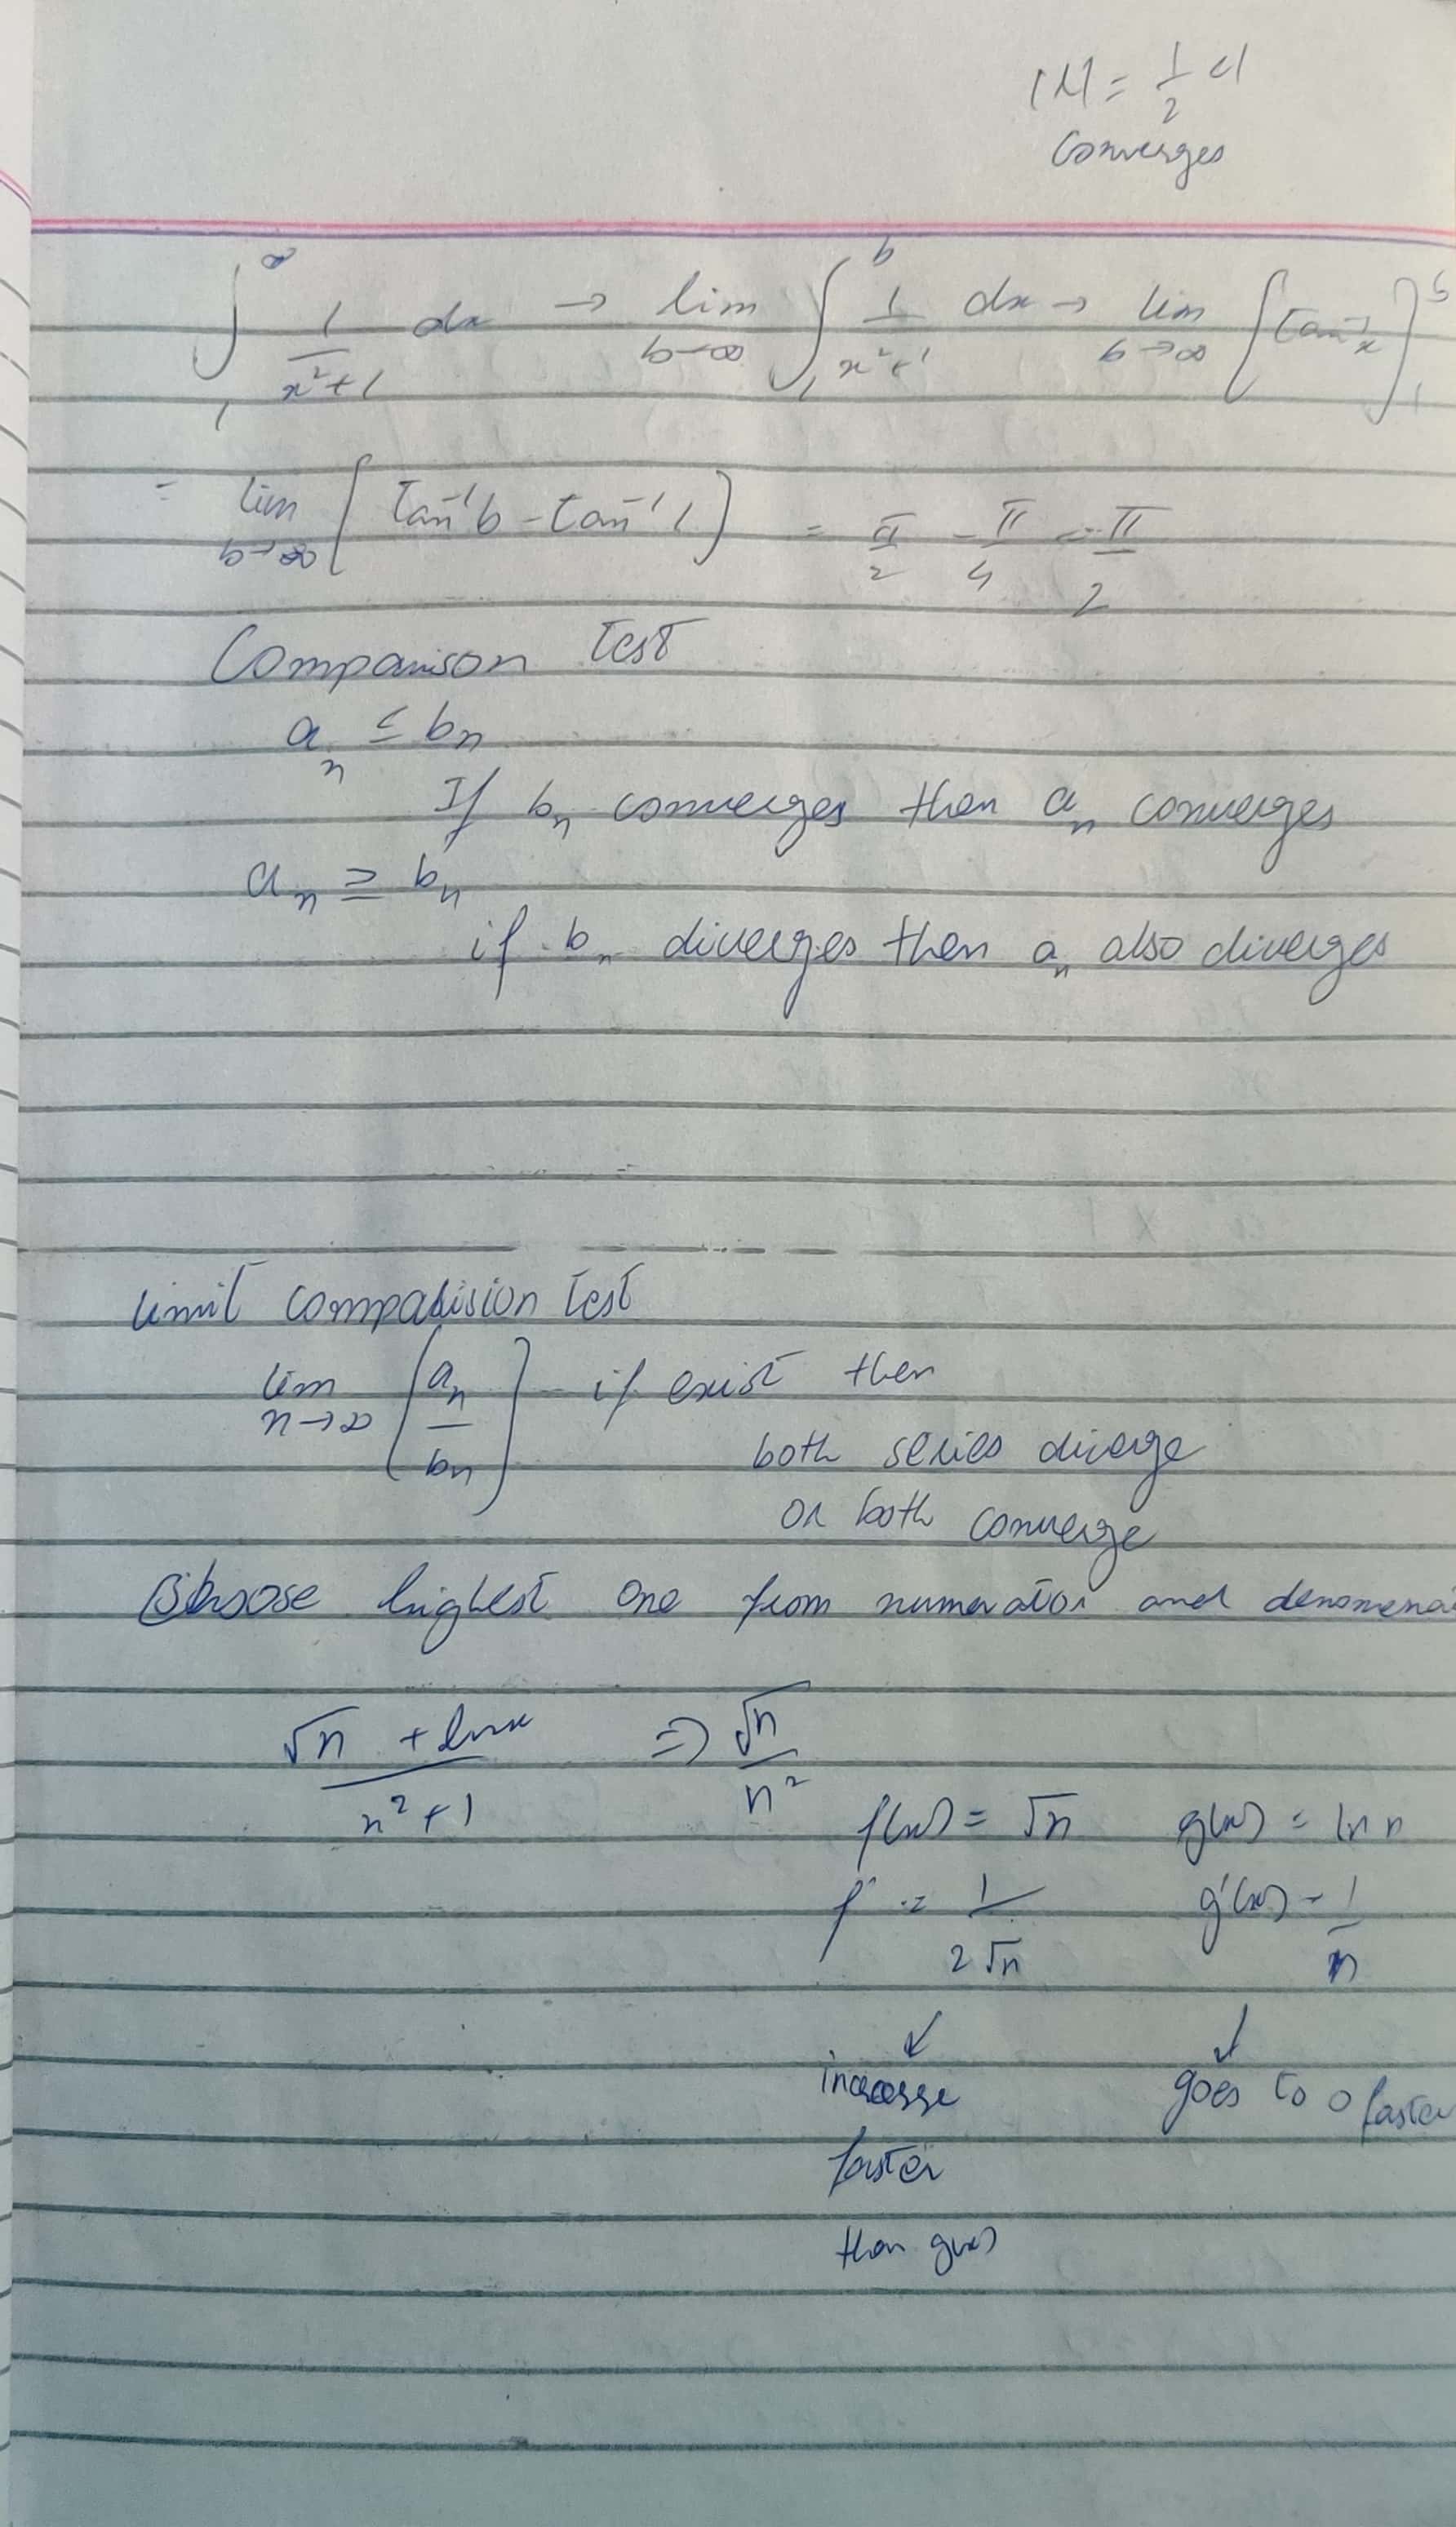 |r| = 1/2 < 1
Converges
∫₁^∞ 1/(x²+1) dx → lim b→∞ ∫₁^b 1/(x²+1) dx → lim b→∞ [tan⁻¹x]₁^b
= lim b→∞ [tan⁻¹b - tan⁻¹1] = π/2 - π/4 = π/2
Comparison Test
aₙ ≤ bₙ
If bₙ converges then aₙ converges
aₙ ≥ bₙ
if bₙ diverges then aₙ also diverges
limit comparision Test
lim n→∞ [aₙ/bₙ] if exist then
both series diverge
or both converge
Choose highest one from numerator and
(√n + ln x)/(n²+1) ⇒ √n/n²
f(x) = √n g(x) = ln n
f' = 1/(2√n) g'(x) = 1/n
↙ ↓
increase goes to 0 faster
faster
than g(x)